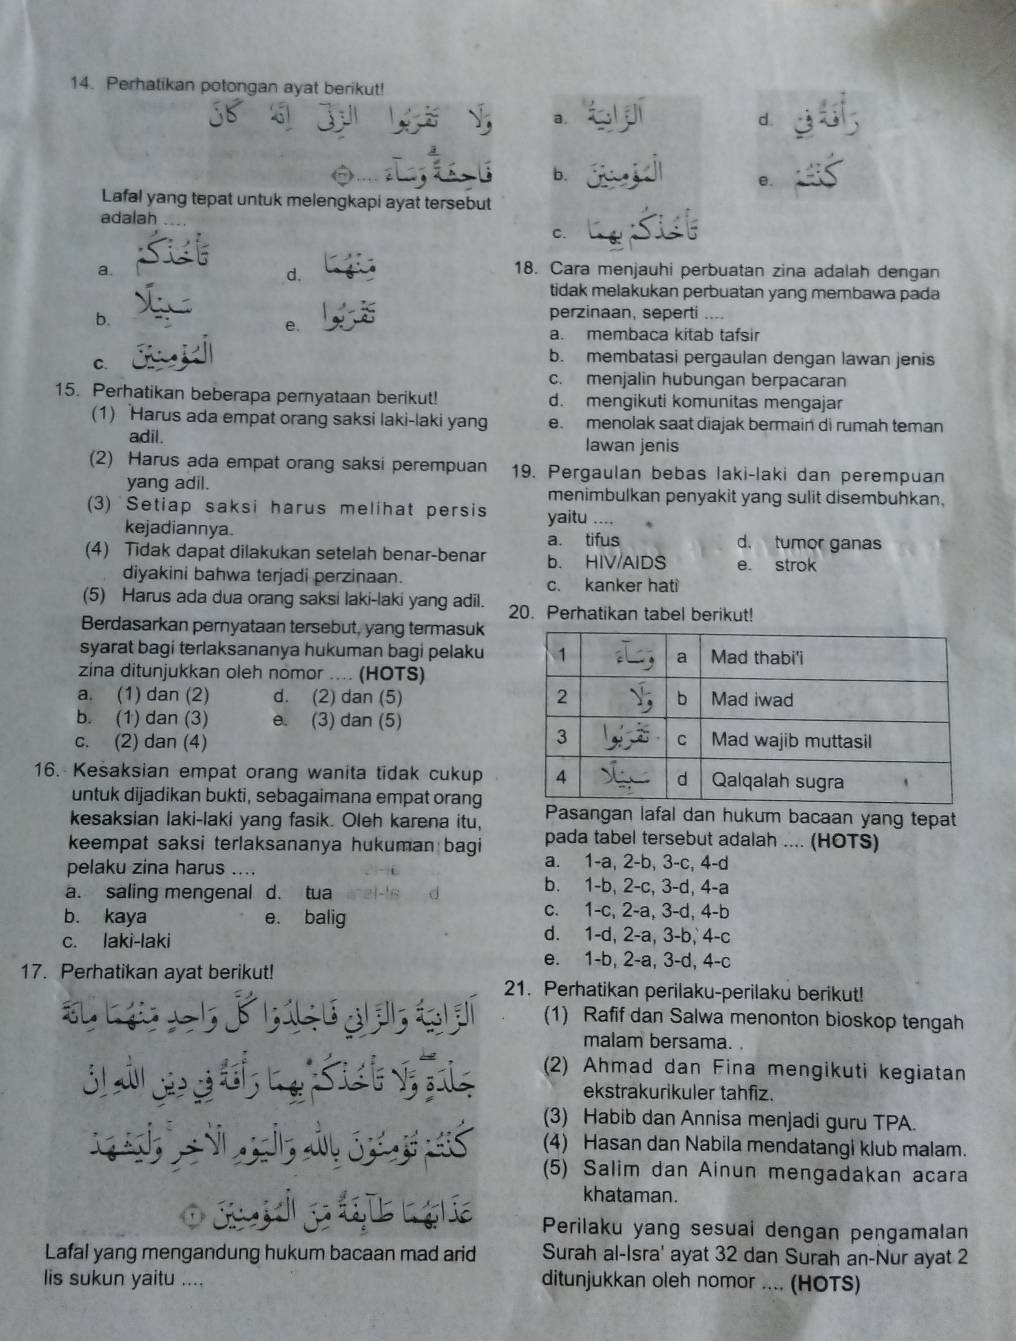 14. Perhatikan potongan ayat berikut!
وَلَا تَقْرَبُوا الزِّنٰىٓ اِنَّهٗ كَانَ
فَاحِشَةً وَسَاۤءَ ....
Lafal yang tepat untuk melengkapi ayat tersebut
adalah ....
a. تَأْخُذْكُمْ d. مِنْهُمَا
b. سَبِيْلًا e. تَقْرَبُوا
c. الْمُؤْمِنِيْنَ
15. Perhatikan beberapa pernyataan berikut!
(1) Harus ada empat orang saksi laki-laki yang
adil.
(2) Harus ada empat orang saksi perempuan
yang adil.
(3) Setiap saksi harus melihat persis
kejadiannya.
(4) Tidak dapat dilakukan setelah benar-benar
diyakini bahwa terjadi perzinaan.
(5) Harus ada dua orang saksi laki-laki yang adil.
Berdasarkan pernyataan tersebut, yang termasuk
syarat bagi terlaksananya hukuman bagi pelaku
zina ditunjukkan oleh nomor .... (HOTS)
a. (1) dan (2) d. (2) dan (5)
b. (1) dan (3) e. (3) dan (5)
c. (2) dan (4)
16. Kesaksian empat orang wanita tidak cukup
untuk dijadikan bukti, sebagaimana empat orang
kesaksian laki-laki yang fasik. Oleh karena itu,
keempat saksi terlaksananya hukuman bagi
pelaku zina harus ....
a. saling mengenal d. tua
b. kaya e. balig
c. laki-laki
17. Perhatikan ayat berikut!
اَلزَّانِيَةُ وَالزَّانِيْ فَاجْلِدُوْا كُلَّ وَاحِدٍ مِّنْهُمَا مِائَةَ
جَلْدَةٍ وَّلَا تَأْخُذْكُمْ بِهِمَا رَأْفَةٌ فِيْ دِيْنِ اللّٰهِ اِنْ
كُنْتُمْ تُؤْمِنُوْنَ بِاللّٰهِ وَالْيَوْمِ الْاٰخِرِ وَلْيَشْهَدْ
عَذَابَهُمَا طَاۤىِٕفَةٌ مِّنَ الْمُؤْمِنِيْنَ ﴿٢﴾
Lafal yang mengandung hukum bacaan mad arid
lis sukun yaitu ....
a. اَلزَّانِيَةُ d. رَأْفَةٌ فِيْ
b. الْمُؤْمِنِيْنَ e. كُنْتُمْ
c. تَأْخُذْكُمْ بِهِمَا
18. Cara menjauhi perbuatan zina adalah dengan
tidak melakukan perbuatan yang membawa pada
perzinaan, seperti ....
a. membaca kitab tafsir
b. membatasi pergaulan dengan lawan jenis
c. menjalin hubungan berpacaran
d. mengikuti komunitas mengajar
e. menolak saat diajak bermain di rumah teman
lawan jenis
19. Pergaulan bebas laki-laki dan perempuan
menimbulkan penyakit yang sulit disembuhkan,
yaitu ....
a. tifus d. tumor ganas
b. HIV/AIDS e. strok
c. kanker hati
20. Perhatikan tabel berikut!
1 وَسَاۤءَ a Mad thabi'i
2 وَلَا b Mad iwad
3 تَقْرَبُوا c Mad wajib muttasil
4 سَبِيْلًا d Qalqalah sugra
Pasangan lafal dan hukum bacaan yang tepat
pada tabel tersebut adalah .... (HOTS)
a. 1-a, 2-b, 3-c, 4-d
b. 1-b, 2-c, 3-d, 4-a
c. 1-c, 2-a, 3-d, 4-b
d. 1-d, 2-a, 3-b, 4-c
e. 1-b, 2-a, 3-d, 4-c
21. Perhatikan perilaku-perilaku berikut!
(1) Rafif dan Salwa menonton bioskop tengah
malam bersama.
(2) Ahmad dan Fina mengikuti kegiatan
ekstrakurikuler tahfiz.
(3) Habib dan Annisa menjadi guru TPA.
(4) Hasan dan Nabila mendatangi klub malam.
(5) Salim dan Ainun mengadakan acara
khataman.
Perilaku yang sesuai dengan pengamalan
Surah al-Isra' ayat 32 dan Surah an-Nur ayat 2
ditunjukkan oleh nomor .... (HOTS)